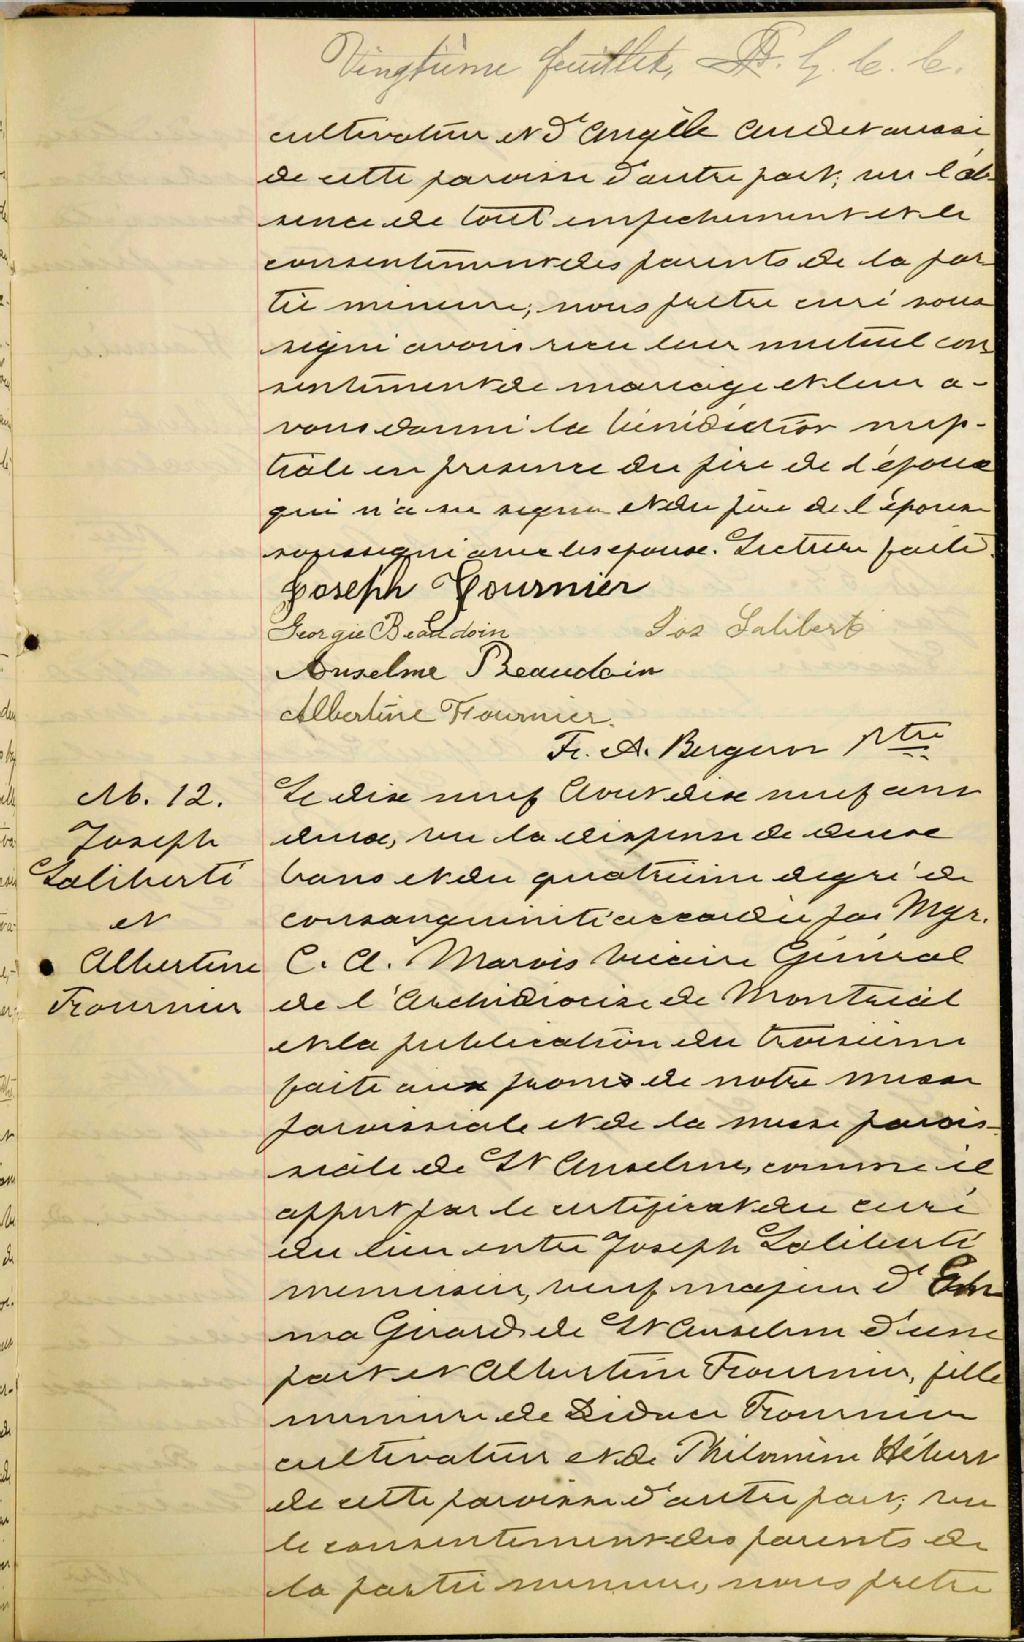 Vingtième feuillet, G. C. C.
cultivateur et d'Angèle Audet aussi
de cette paroisse d'autre part; vu l'ab-
sence de tout empechement et le
consentement des parents de la par
tie mineure, nous prêtre curé sous
signé avons reçu leur mutuel con
sentement de mariage et leur a-
vons donné la bénédiction nup-
tiale en présence du père de l'époux
qui n'a su signer et du père de l'épouse
soussigné avec les epoux. Lecture faite.
Joseph Fournier
Georgie Beaudoin Jos Laliberté
Anselme Beaudoin
Albertine Fournier.
Fr. A. Bergeron Ptre
M. 12.
Joseph
Laliberté
et
Albertine
Fournier
Le dix neuf Aout dix neuf cent
deux, vu la dispense de deux
bans et du quatrième degré de
consanguinité accordée par Mgr.
C. A. Marois Vicaire Général
de l'Archidiocèse de Montréal
et la publication du troisième
faite aux prones de notre messe
paroissiale et de la messe parois-
siale de St Anselme, comme il
appert par le certificat du curé
du lieu entre Joseph Laliberté
menuisier, veuf majeur d'
ma Girard de St Anselme d'une
part et Albertine Fournier, fille
mineure de Didace Fournier
cultivateur et de Philomène Hébert
de cette paroisse d'autre part; vu
le consentement des parents de
la partie mineure, nous prêtre